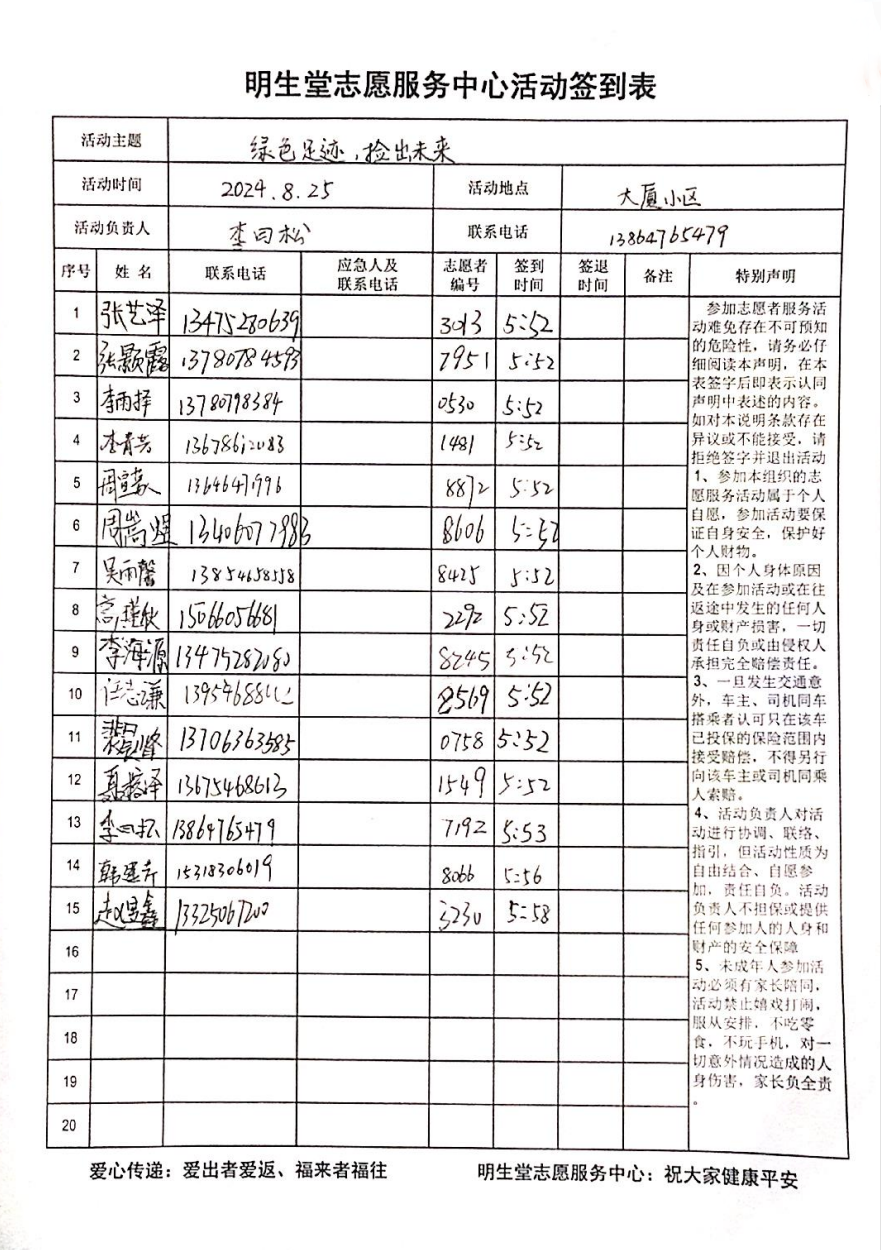 明生堂志愿服务中心活动签到表
活动主题 绿色足迹,捡出未来
活动时间 2024.8.25 活动地点 大厦小区
活动负责人 李曰松 联系电话 13864765479
序号 姓名 联系电话 应急人及联系电话 志愿者编号 签到时间 签退时间 备注 特别声明
1 张艺泽 13475280639 3013 5:52
2 张颢露 13780784593 7951 5:52
3 李雨择 13780798384 0530 5:52
4 李青芸 1481 5:52
5 周 13646471996 8872 5:52
6 周嵩煜 13406077983 8606 5:52
7 吴雨馨 13854658558 8425 5:52
8 高瑾欣 15066056681 2292 5:52
9 李海源 13475282080 8245 5:52
10 汪志谦 8569 5:52
11 13706363585 0758 5:52
12 13675468613 1549 5:52
13 李曰松 13864765479 7192 5:53
14 韩 15318306019 8066 5:56
15 赵 鑫 13325067200 3230 5:58
16
17
18
19
20
参加志愿者服务活
动难免存在不可预知
的危险性,请务必仔
细阅读本声明,在本
表签字后即表示认同
声明中表述的内容。
如对本说明条款存在
异议或不能接受,请
拒绝签字并退出活动
1、参加本组织的志
愿服务活动属于个人
自愿,参加活动要保
证自身安全,保护好
个人财物。
2、因个人身体原因
及在参加活动或在往
返途中发生的任何人
身或财产损害,一切
责任自负或由侵权人
承担完全赔偿责任。
3、一旦发生交通意
外,车主、司机同车
搭乘者认可只在该车
已投保的保险范围内
接受赔偿,不得另行
向该车主或司机同乘
人索赔。
4、活动负责人对活
动进行协调、联络、
指引,但活动性质为
自由结合、自愿参
加,责任自负。活动
负责人不担保或提供
任何参加人的人身和
财产的安全保障
5、未成年人参加活
动必须有家长陪同,
活动禁止嬉戏打闹,
服从安排,不吃零
食,不玩手机,对一
切意外情况造成的人
身伤害,家长负全责
。
爱心传递:爱出者爱返、福来者福往 明生堂志愿服务中心:祝大家健康平安